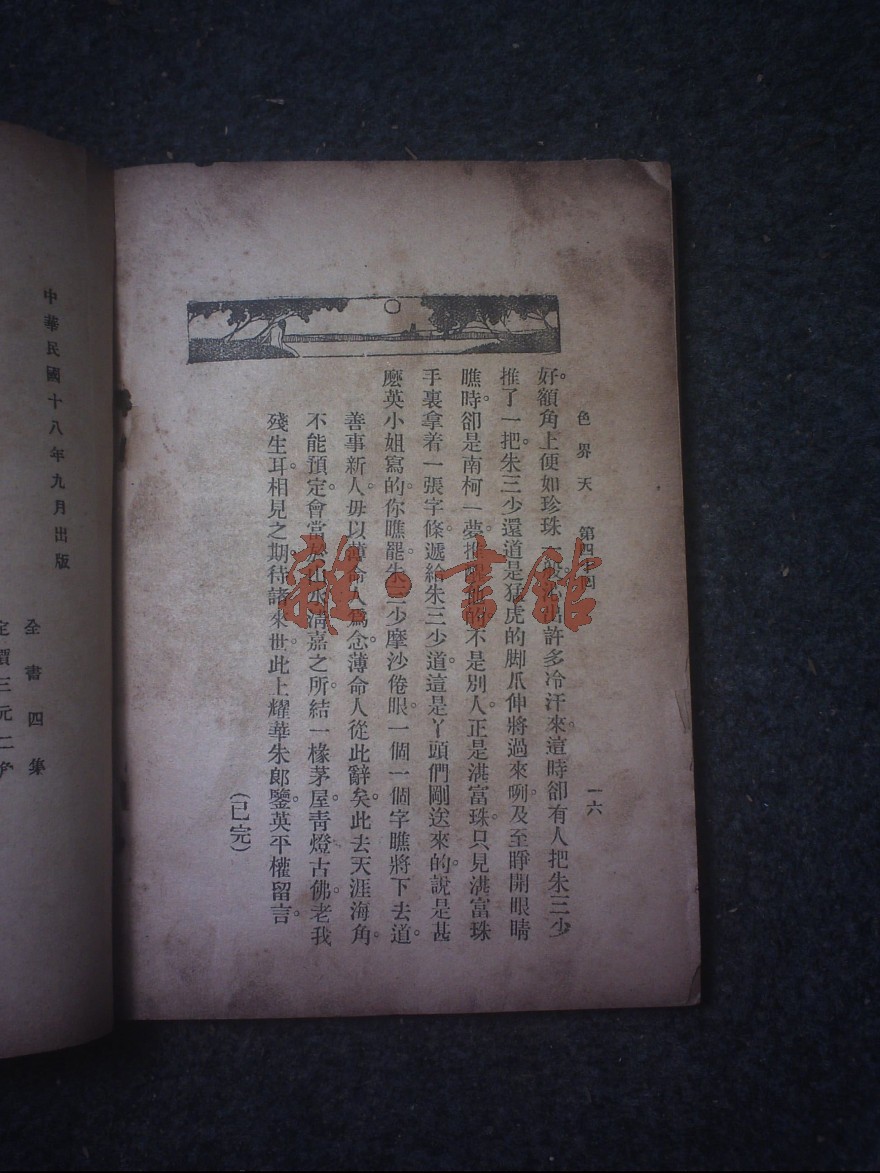 色界天 第四十回
一六
好。額角上便如珍珠一般。出許多冷汗來。這時卻有人把朱三少
推了一把。朱三少還道是猛虎的脚爪伸將過來咧。及至睜開眼睛
瞧時。卻是南柯一夢。推醒他的不是別人。正是洪富珠。只見洪富珠
手裏拿着一張字條。遞給朱三少道。這是丫頭們剛送來的。說是甚
麽英小姐寫的。你瞧罷。朱三少摩沙倦眼。一個一個字瞧將下去道。
善事新人。毋以薄命人爲念。薄命人從此辭矣。此去天涯海角。
不能預定。會當於山水淸嘉之所。結一椽茅屋。靑燈古佛。老我
殘生耳。相見之期。待諸來世。此上耀華朱郞鑒。英平權留言。
(已完)
雜·書館
中華民國十八年九月出版
全書四集
定價三元二角